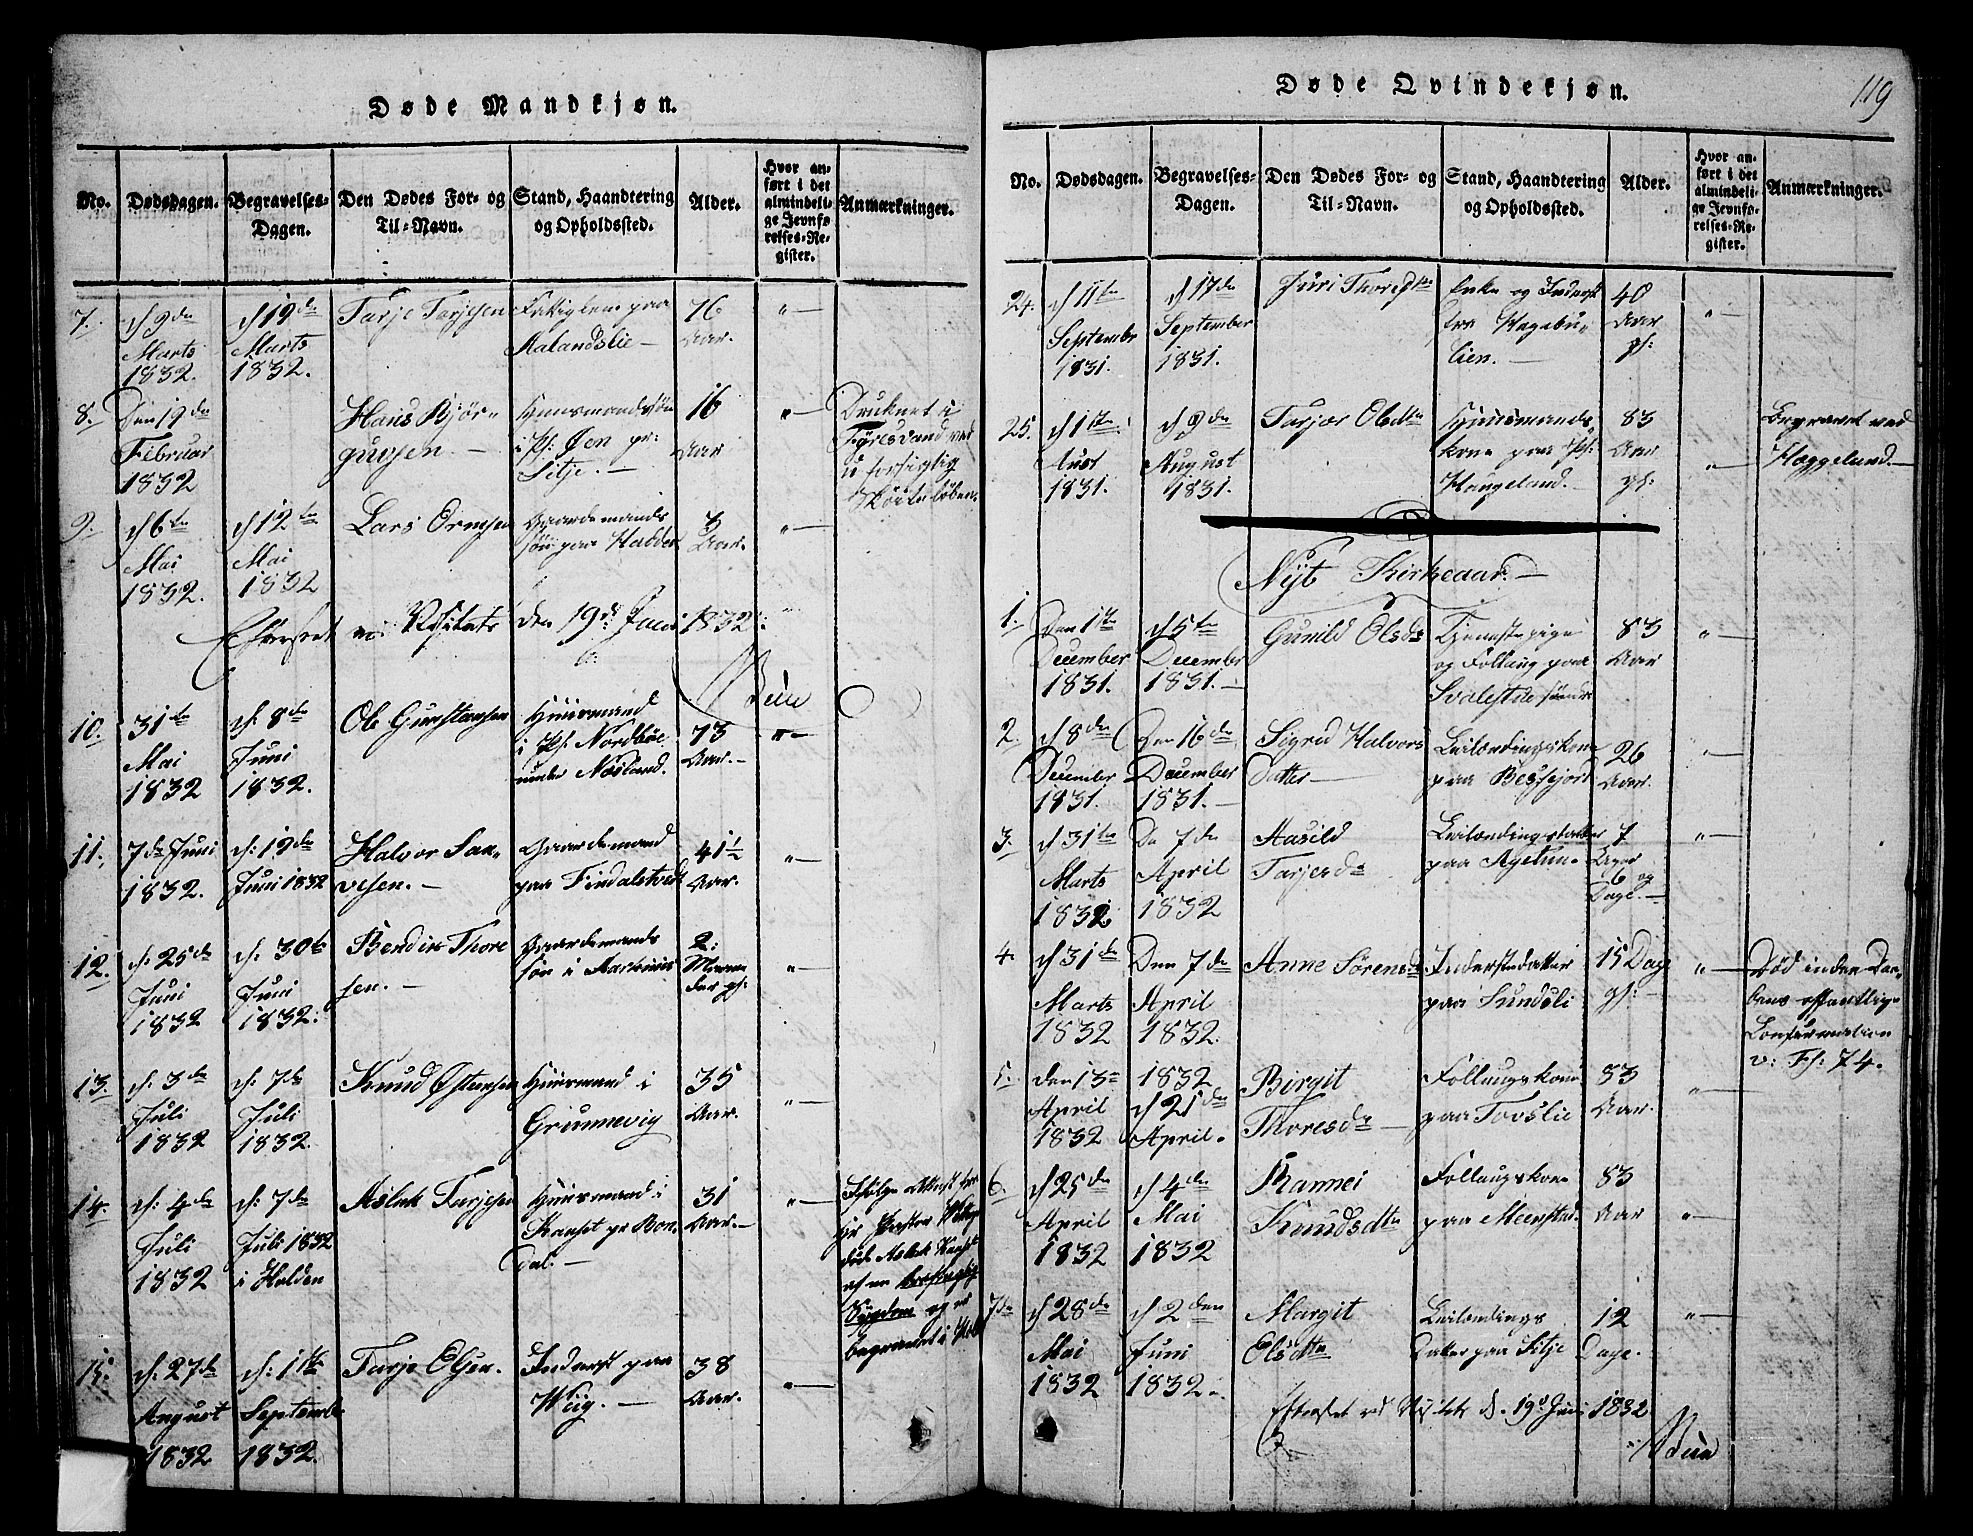 Døde Mandkjøn.
No.
Dødsdagen.
Begravelses-
Dagen.
Den Dødes For- og
Til-Navn.
Stand, Haandtering
og Opholdssted.
Alder.
Hvor an-
ført i det
almindeli-
ge Jevnfø-
relses-Re-
gister.
Anmærkninger.
7.
d 9de
Marts
1832.
d 19de
Marts
1832.
Tarje Tarjesen
Fattiglem paa
Aalandslie
76
Aar.
"
8.
Den 19de
Februar
1832
Hans Bjør-
gufsen.
Huusmandssøn
i Pl:
Sitje.
16
Aar
"
Druknet i
Fyresvand ved
uforsigtig
9.
d 6te
Mai
1832.
d 12te
Mai
1832
Lars Ormsen
Gaardemands
søn paa
3
Aar.
"
Efterseet ved Visitats den 19de Juni 1832.
10.
31te
Mai
1832
d. 8de
Juni
1832.
Ole Gunstensen
Huusmand
i Pl. Nordbøe
under Næsland.
73
Aar.
"
11.
7de Juni
1832.
d: 19de
Juni 1832
Halvor San-
vesen.
Gaardemand
paa Findalstvedt
41½
Aar.
"
12.
d: 25de
Juni
1832
d. 30te
Juni
1832.
Bendix Thore
sen.
Gaardemands
søn i
2:
"
13.
d: 3de
Juli
1832
d: 7de
Juli
1832.
Knud Østensen
Huusmand i
Grunnevig
35
Aar.
"
14.
d: 4de
Juli
1832
d: 7de
Juli 1832
i Holden
Aslak Tarjesen
Huusmand i
Kaaset pr Bon-
dal.
31
Aar.
"
Ifølge Attest fra
Hr Pastor
døde Aslak
af en
Sygdom og er
begravet i
15.
d. 27de
August
1832
d: 1ste
Septembr
1832.
Tarje Olsen.
Inderst paa
Wiig.
38
Aar.
"
Døde Qvindekjøn.
119
No.
Dødsdagen.
Begravelses-
Dagen.
Den Dødes For- og
Til-Navn.
Stand, Haandtering
og Opholdssted.
Alder.
Hvor an-
ført i det
almindeli-
ge Jevnfø-
relses-Re-
gister.
Anmærkninger.
24.
d 11te
Septembr
1831.
d 17de
September
1831.
Juri Thoresdtr
Enke og Inderst
fra Hagebu-
lien.
40
Aar
gl:
"
25.
d 1ste
August
1831.
d 9de
August
1831.
Tarjer Olsdtr
Huusmands-
kone paa Pl:
Haugeland.
83
Aar
gl:
"
Begravet ved
Hæggelund.
Nyt Kirkeaar.
1.
Den 1te
December
1831.
d 5te
December
1831.
Gunild Olsdr
Tjenestepige
og Føllaug paa
Svalestue søndre
83
Aar
"
2.
d 8de
December
1831.
Den 16de
December
1831.
Sigrid Halvors
Datter
Leilændingskone
paa Bessefjord
26
Aar.
"
3.
d 31te
Marts
1832
De 7de
April
1832
Aasild
Tarjesdr
Leilændingsdatter
paa
7
Uger
6 og
Dage.
"
4.
d 31de
Marts
1832
Den 7de
April
1832.
Anne Sørensdr
Inderstedatter
paa Sundsli
15 Dage
gl:
"
Død inden Daa-
bens offentlige
Confirmation
v: Fl: 74.
5.
den 13de
April
1832
1832
d 21de
April.
Birgit
Thoresdr
Føllaugskone
paa Tovslie
83
Aar.
"
6.
d 25de
April
1832
d 4de
Mai
1832
Rannei
Knudsdtr
Føllaugskone
paa Meenstad
83
Aar
"
7de
d 28de
Mai
1832
d 2den
Juni
1832.
Margit
Olsdtr
Leilændings
datter paa Sitje
12
Dage.
"
Efterseet ved Visitats d. 19de Juni 1832